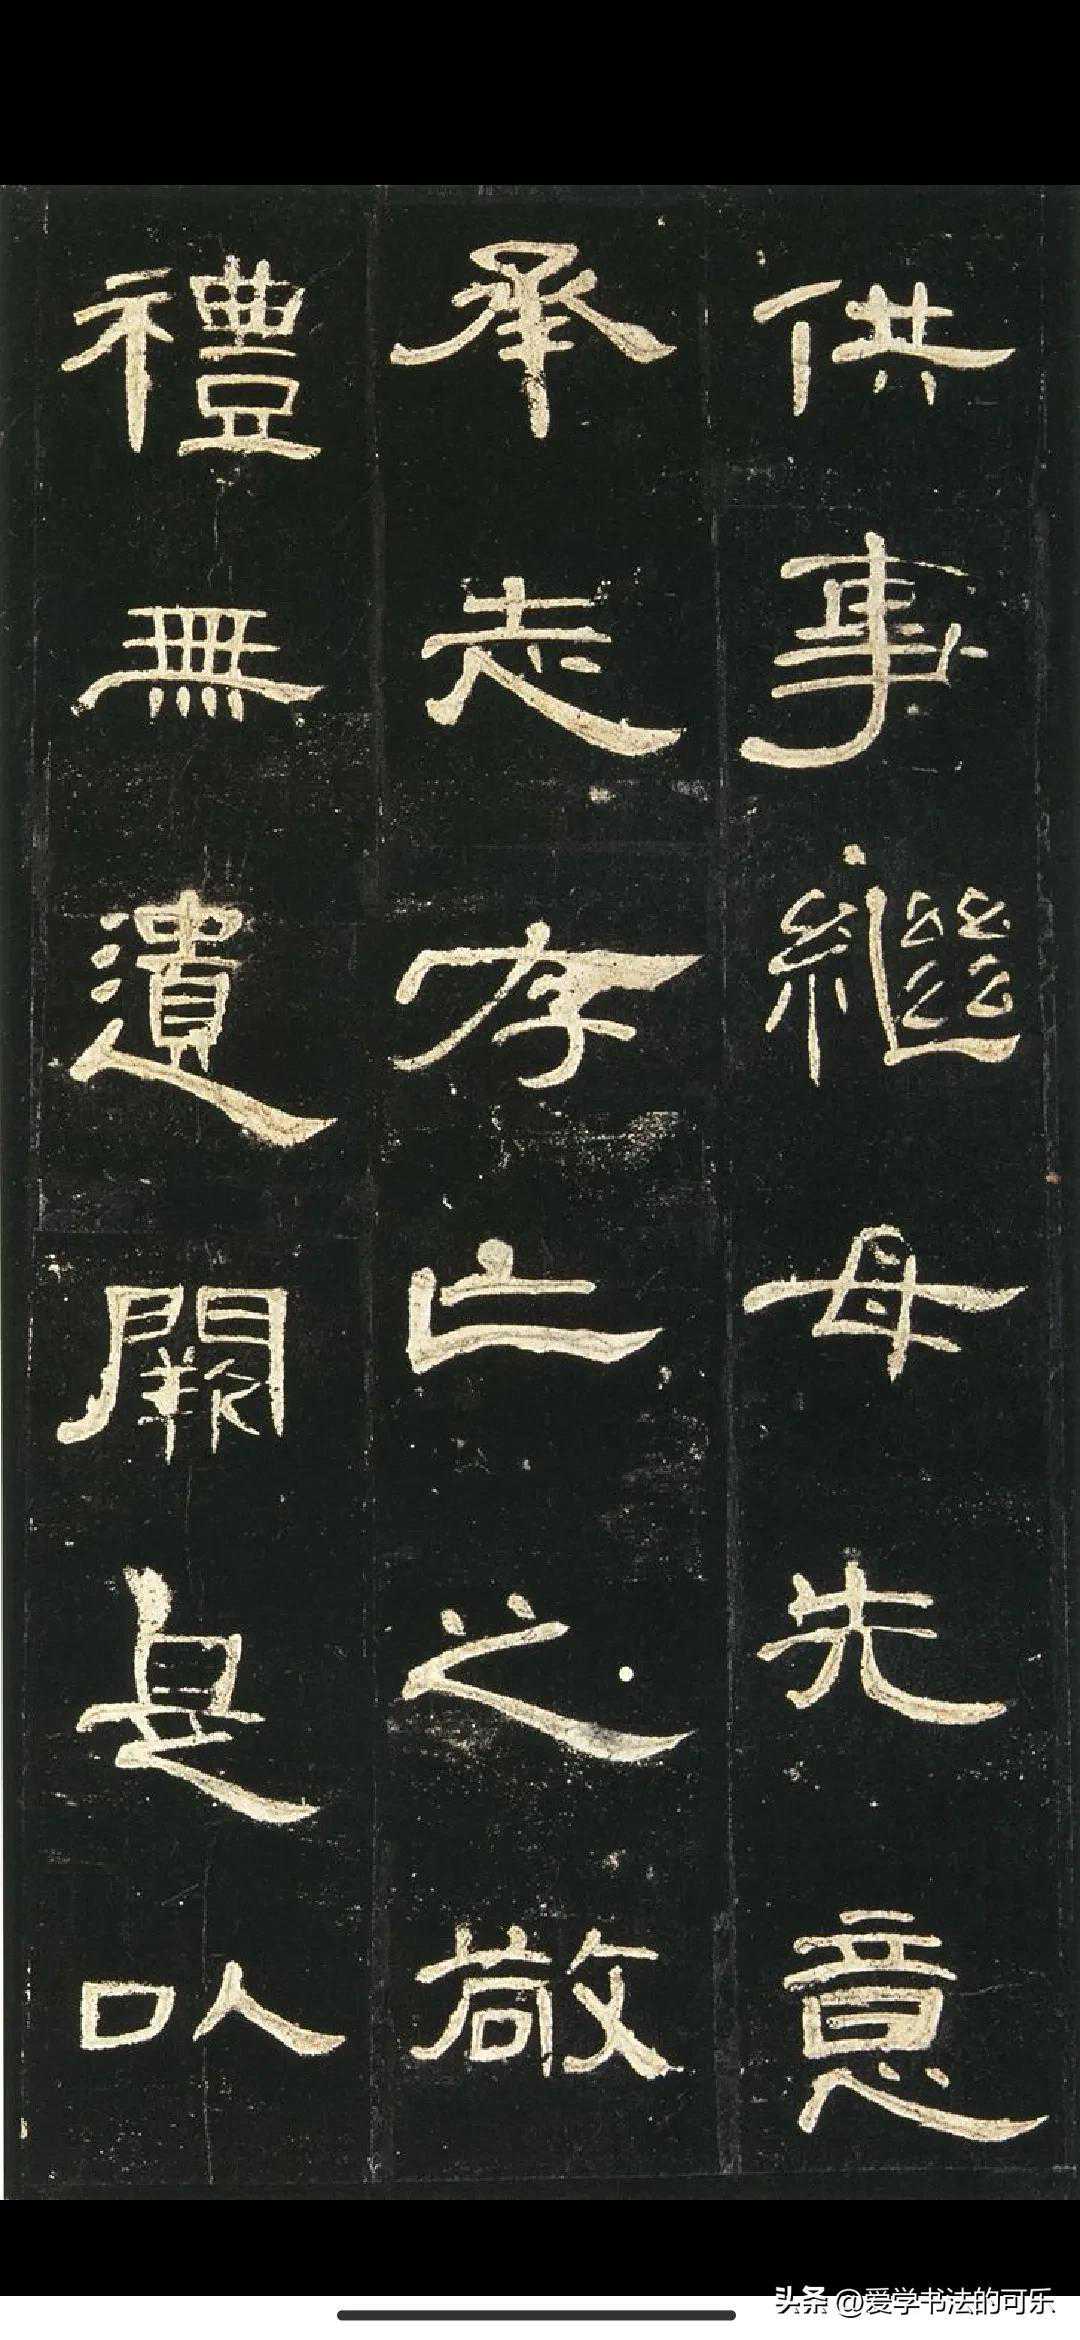 供事繼母先意
承志存亡之敬
禮無遺闕是以
头条 @爱学书法的可乐